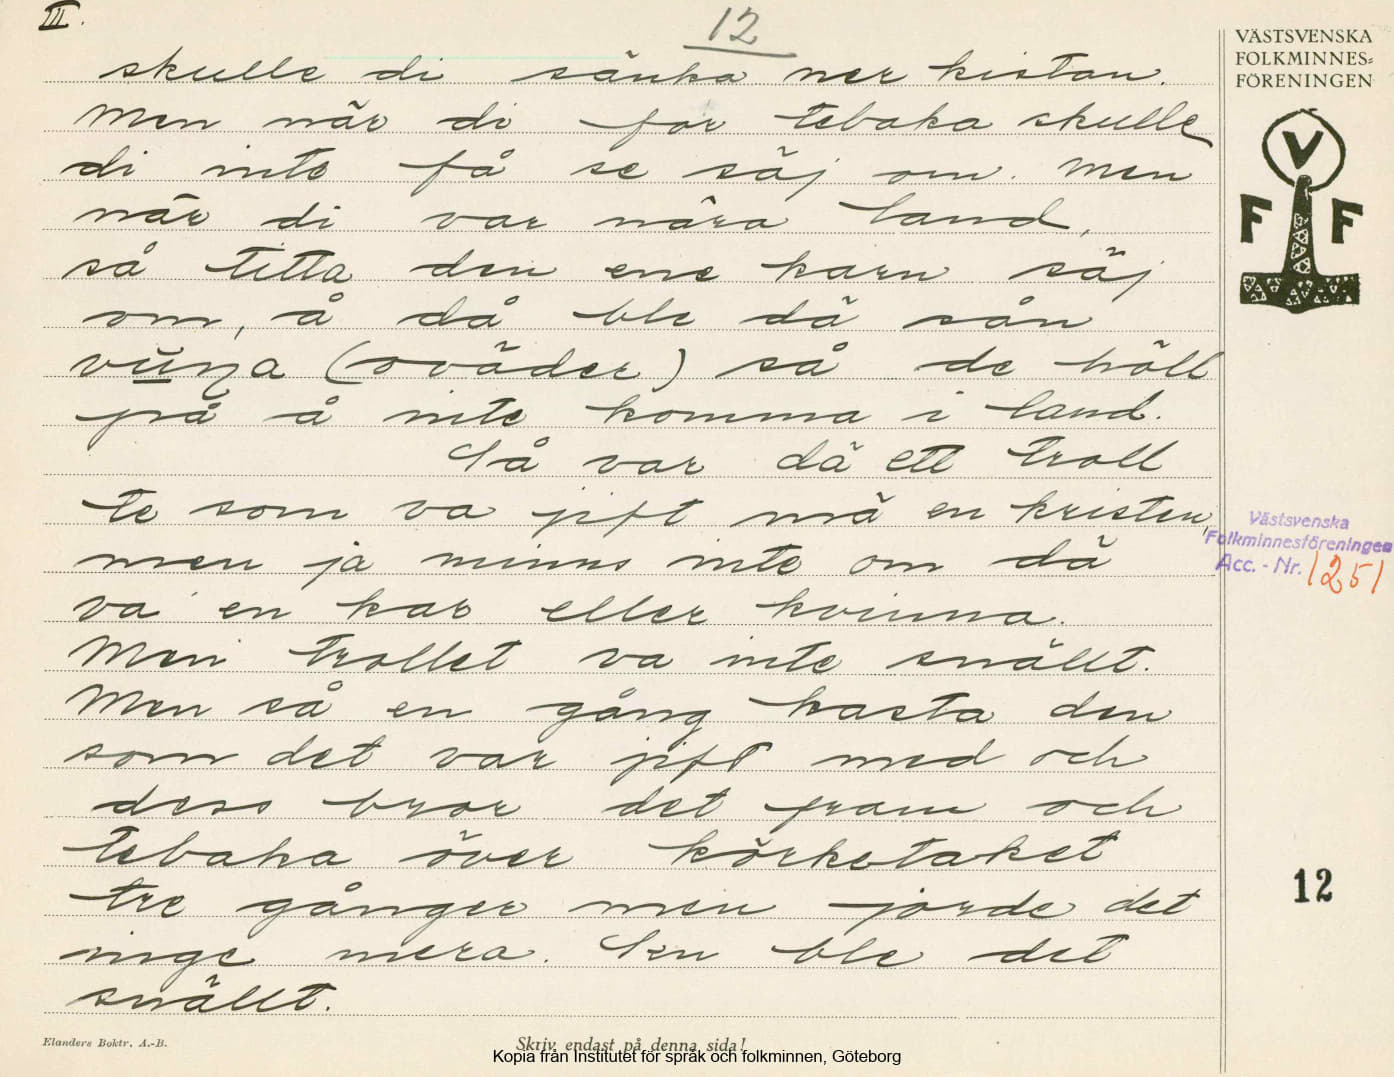 III.
12
skulle di sänka ner kistan.
Men när di for tebaka skulle
di inte få se säj om. Men
när di var nära land,
så titta den ene karn säj
om, å då ble dä sån
vuŋa (oväder) så de höll
på å inte komma i land.
Så var dä ett troll
te som va jift mä en kristen,
men ja minns inte om dä
va en kar eller kvinna.
Men trollet va inte snällt.
Men så en gång kasta den
som det var jift med och
dess bror det fram och
tebaka över körketaket
tre gånger men jorde det
inge mera. Sen ble det
snällt.
VÄSTSVENSKA
FOLKMINNES-
FÖRENINGEN
V
F F
Västsvenska
Folkminnesföreningen
Acc. - Nr. 1251
12
Elanders Boktr. A.-B.
Skriv endast på denna sida!
Kopia från Institutet för språk och folkminnen, Göteborg